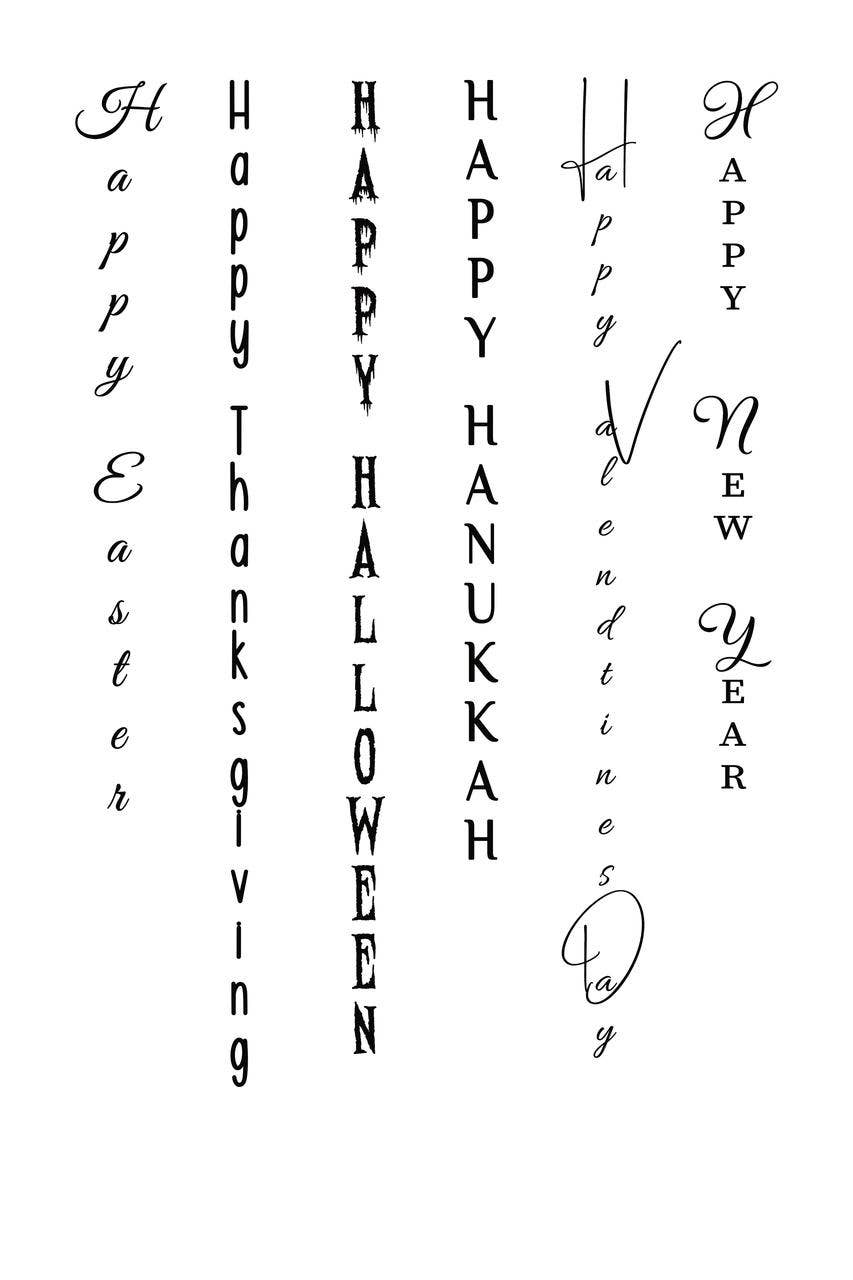 Happy Easter
Happy Thanksgiving
HAPPY HALLOWEEN
HAPPY HANUKKAH
Happy Valendtines Day
HAPPY NEW YEAR